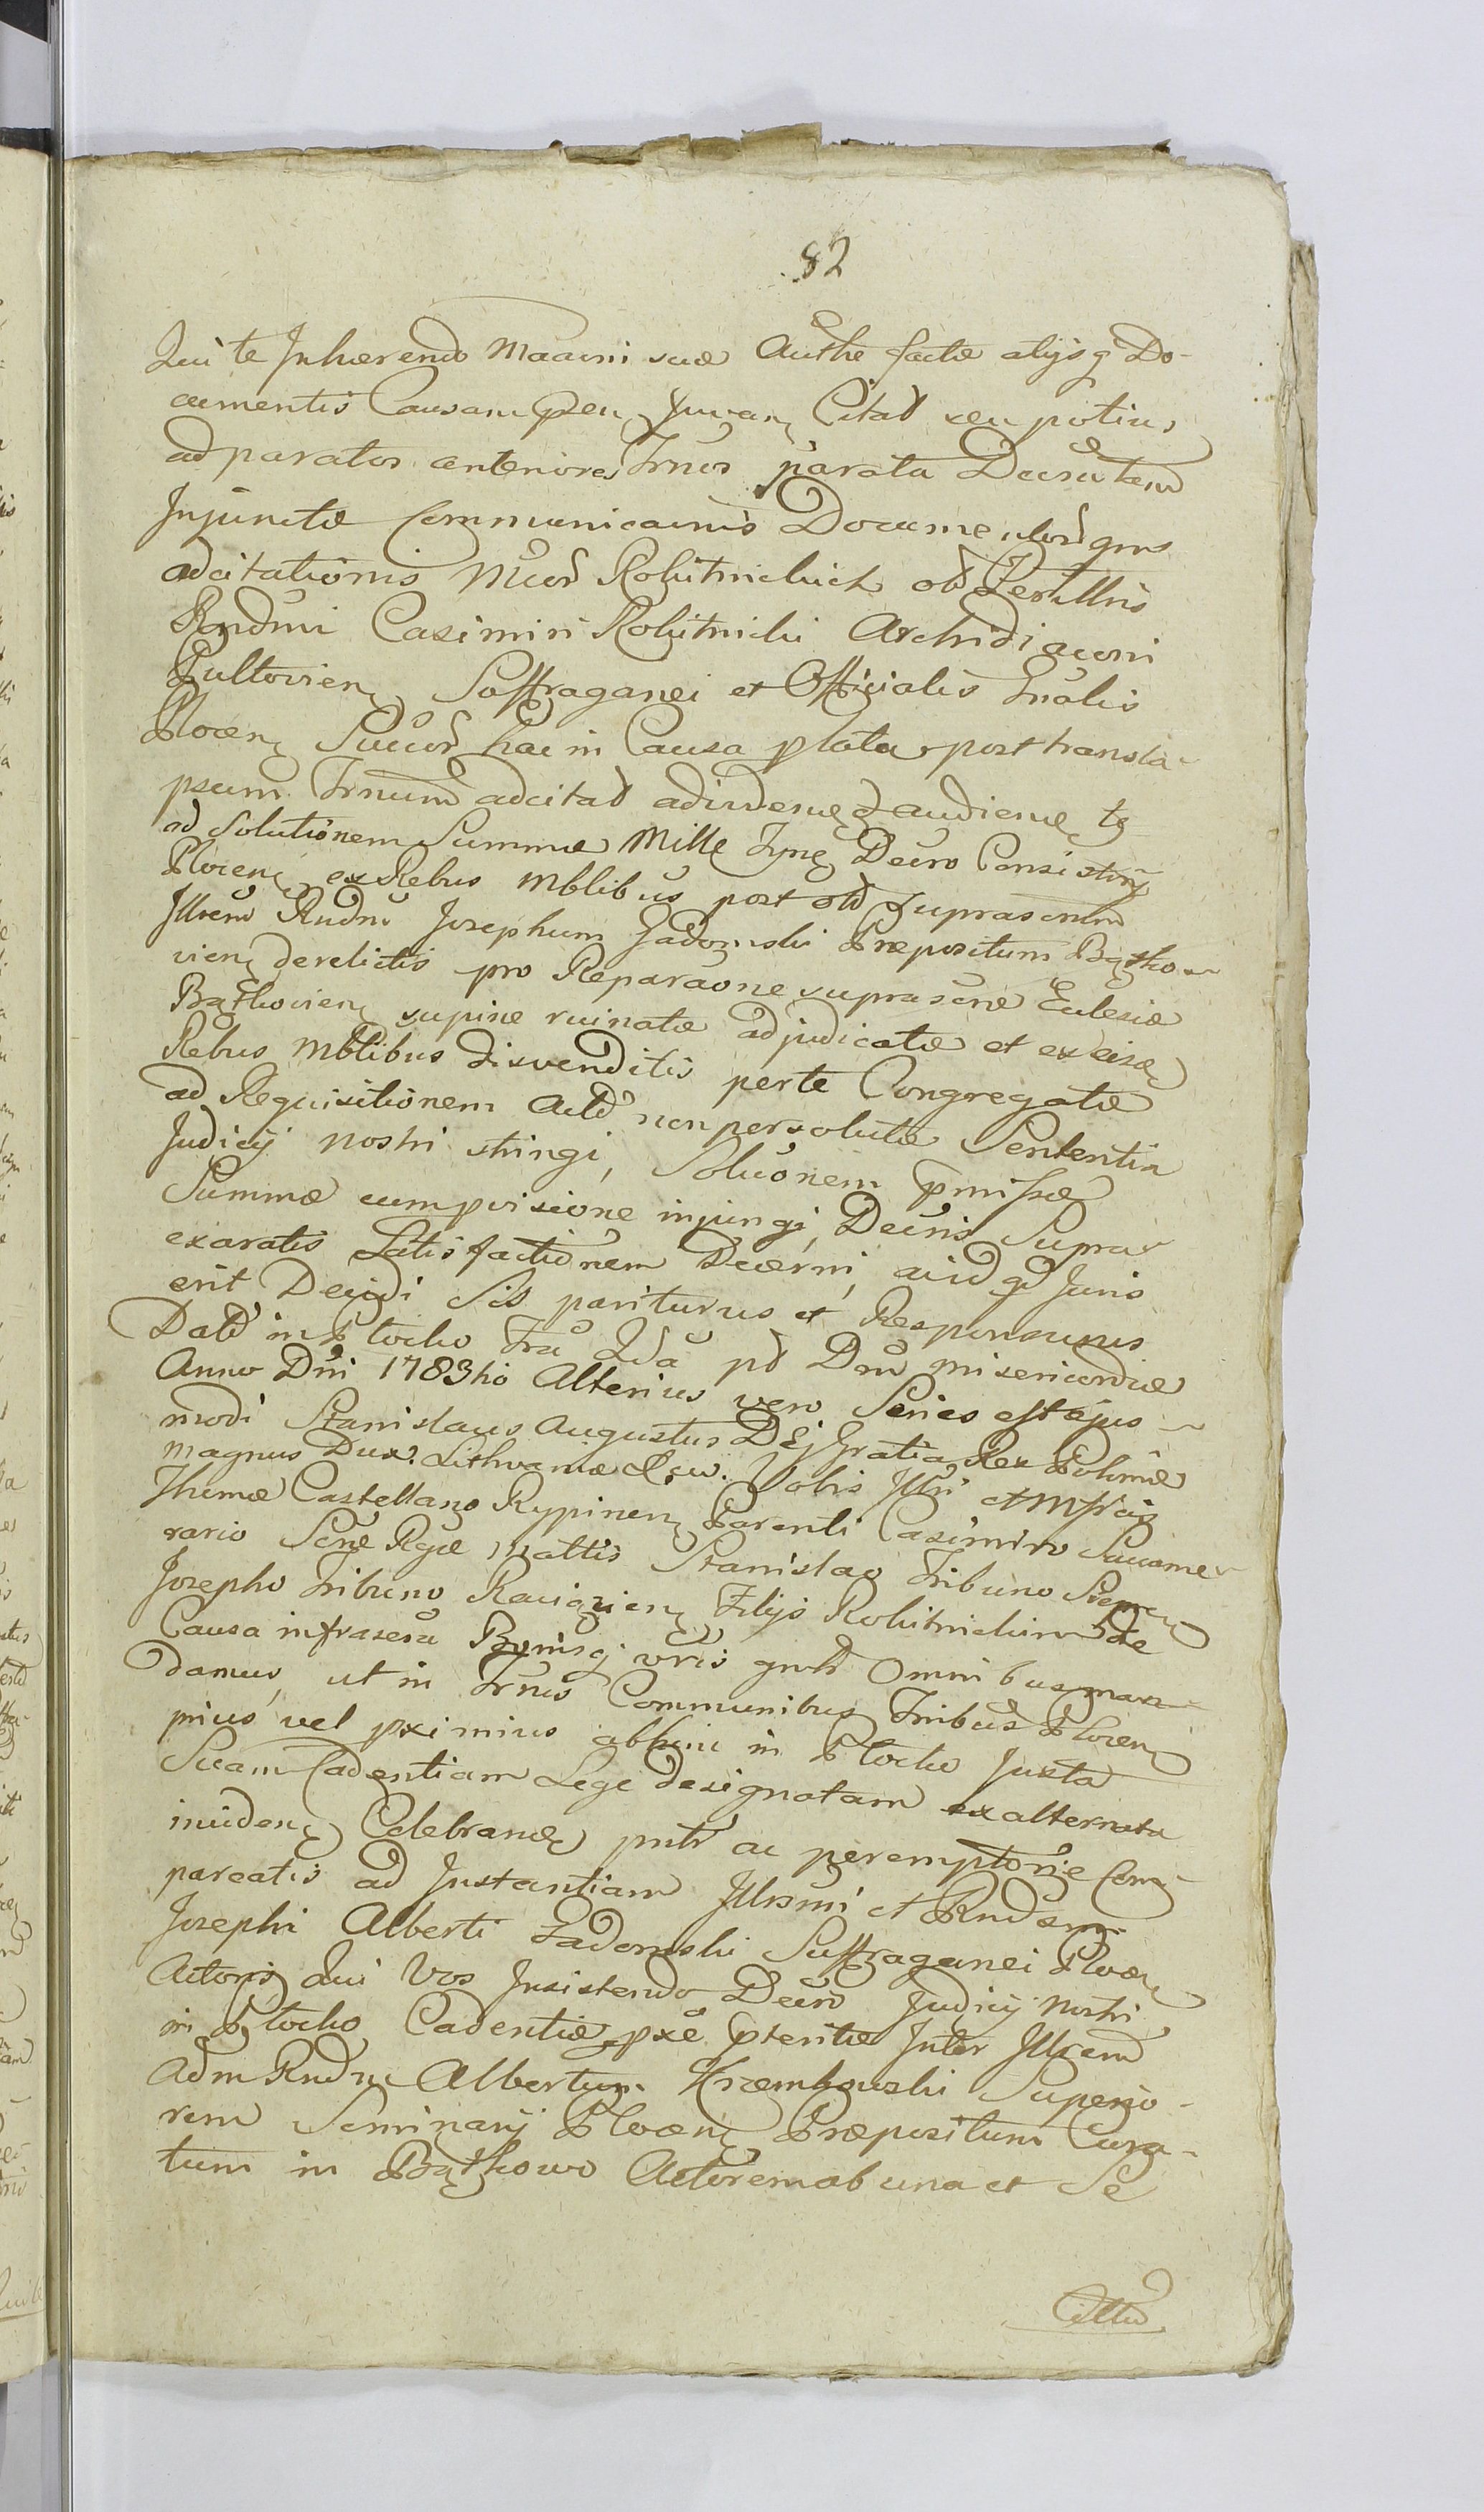 82
Qui te Inhærendo Maãoni suæ Authê factæ alijsq Do-
cumentis Causam Citat seu potius
ad paratos anteriores Trnos parata Decretand
Injunctæ Communicaonis Documentord gnus
adcitationis Mcor Rokitnickich old Perillris
Rendmi Casimiri Rokitnicki Archidiaconi
Pultovien Soffraganei et Officialis Gnalis
Plocen Succor hac in Causa plata post transla-
psum Trnum adcitat adividend audiend te
ad Solutionem Summæ Mille Decro Consistorij
Plocen ex Rebus Mblibus post old suprascrin
Illrem Rndm Josephum Zadomski Præpositum Bątko-
vien derelictis pro Reparaone suprascriæ Ecclesiæ
Bątkovien supine ruinatæ adjudicatæ et ex eisd
Rebus Mblibus disvenditis per te Congregatæ
ad Requisitionem Actd non persolutæ Sententia
Judicij nostri stringi, Soluonem pmissæ
Summæ cum provisione injungi, Decris Supra
exaratis Satisfactionem Decerni, acid qd Juris
erit Decidi Sis pariturus et Responsurus
Datd in Plocko Fra 2da pt Dm misericordiæ
Anno Dni 1783tio Alterius vero Series est ejus-
modi Stanislaus Augustus DEj Gratia Rex Poloniæ
Magnus Dux. Lithvaniæ &cw. Vobis Illri et Mfico
Thomæ Castellano Rypinen Parenti Casimiro Succame-
rario Scræ Rgiæ Mattis Stanislao Tribuno Sierpcen
Josepho Tribuno Raciązien Filijs Rokitnickim De
Causa infrascra Bonisq vris gnlr Omnibus man-
damus, ut in Trnis Communibus Tribus Plocen
prius vel pximius abhinc in Plocko Juxta
Suam Cadentiam Lege designatam ex alternata
incidend Celebrand pntr ac peremptorie Com-
pareatis ad Instantiam Illrsmi et Rndsmi
Josephi Alberti Zadomski Suffraganei Plocen
Actoris Qui Vos Insistendo Decro Judicij Nostri
in Plocko Cadentiæ pxê pteritæ Inter Illrem
Adm Rndm Albertum Krzemkowski Superio-
rem Seminarij Plocen Præpositum Cura-
tum in Bątkowo Actorem ab una et Se
Cittd